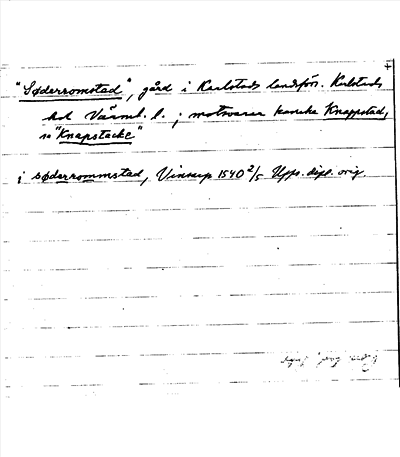 "Søderromstad", gård i Karlstads landsförs. Karlstads
hd Värml. l.; motsvarar kanske Knappstad,
se "Knapstacke"
i søderrommstad, Vinterp 1540 2/5 Upps. dipl. orig.